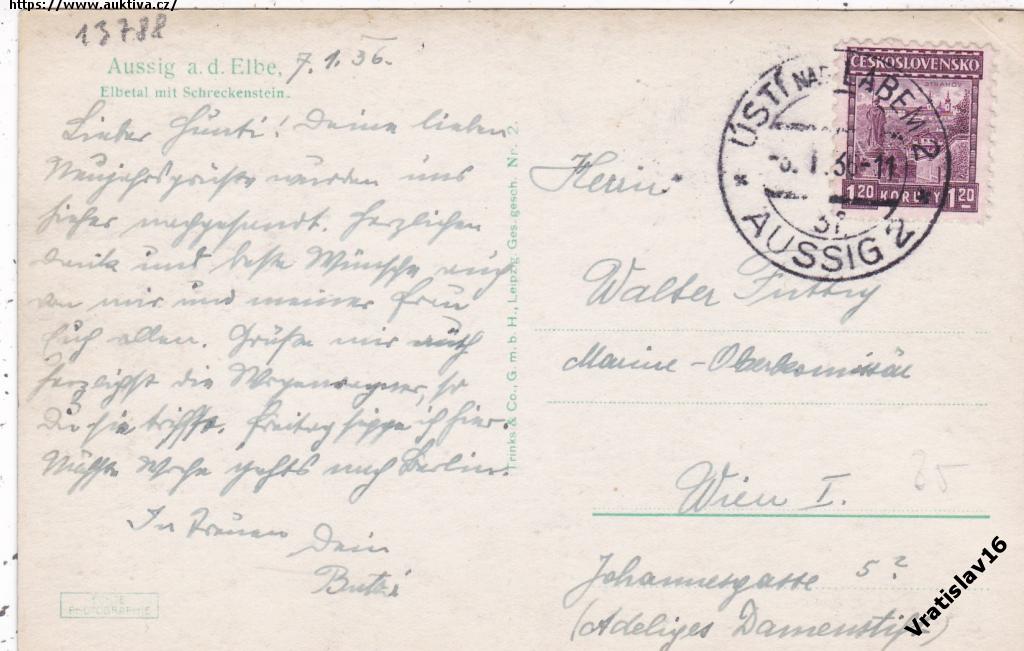 https://www.auktiva.cz/
13788
Aussig a. d. Elbe, 7.1.36.
Elbetal mit Schreckenstein.
Lieber Hunti! Deine lieben
Neujahrsgrüße wurden uns
hieher nachgesandt. Herzlichen
Dank und beste Wünsche auch
von mir und meiner Frau
Euch allen. Grüße mir auch
herzlichst die
Du sie triffst. Freitag ich hier.
Nächste Woche gehts nach Berlin.
In Treuen
Dein
ECHTE
PHOTOGRAPHIE
Trinks & Co., G. m. b. H., Leipzig. Ges. gesch. Nr. 2.
ČESKOSLOVENSKO
STRAHOV
1.20 KORUNY 1.20
ÚSTÍ NAD LABEM 2
AUSSIG 2
Herrn
Walter
Marine-Oberkommissär
Wien I.
35
Johannesgasse 5?
(Adeliges Damenstift)
Vratislav16